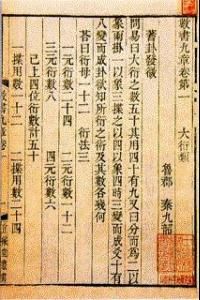 數書九章卷第一
大衍類
魯郡 秦九韶
蓍卦發微
問易曰大衍之數五十其用四十有九又曰分而為二以
象兩掛一以象三揲之以四以象四時三變而成爻十有
八變而成卦欲知所衍之術及其數各幾何
答曰衍母一十二 衍法三
一元衍數二十四 二元衍數一十二
三元衍數八 四元衍數六
已上四位衍數計五十
一揲用數一十二 二揲用數二十四